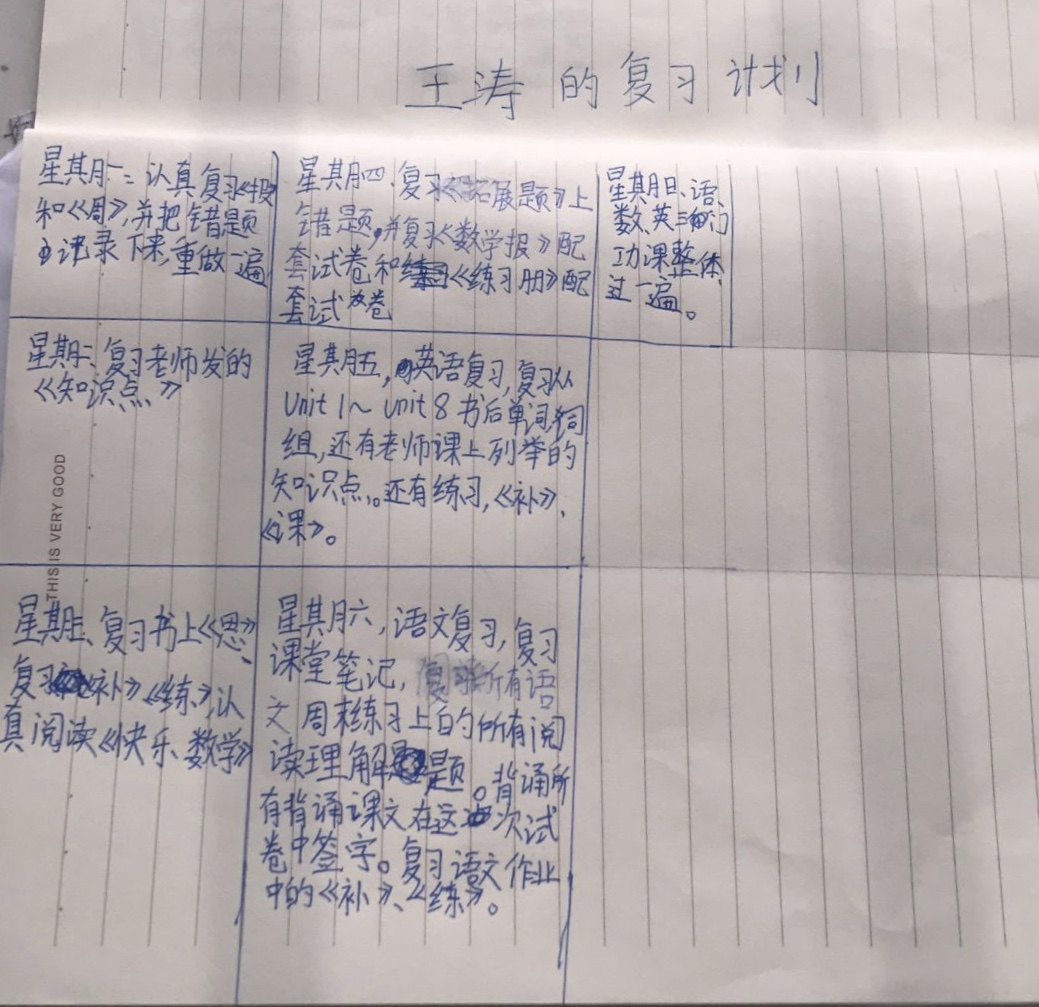 王涛的复习计划
星期一：认真复习《报》
和《周》，并把错题
记录下来，重做一遍
星期二、复习老师发的
《知识点》
星期三、复习书上《思》、
复习《补》《练》，认
真阅读《快乐数学》
星期四、复习《拓展题》上
错题，并复习《数学报》配
套试卷和《练习册》配
套试卷
星期五，英语复习，复习从
Unit 1～Unit 8 书后单词，词
组，还有老师课上列举的
知识点。还有练习，《补》、
《课》。
星期六，语文复习，复习
课堂笔记，所有语
文周末练习上的所有阅
读理解题。背诵所
有背诵课文在这次试
卷中签字。复习语文作业
中的《补》、《练》。
星期日、语、
数、英三门
功课整体
过一遍。
THIS IS VERY GOOD